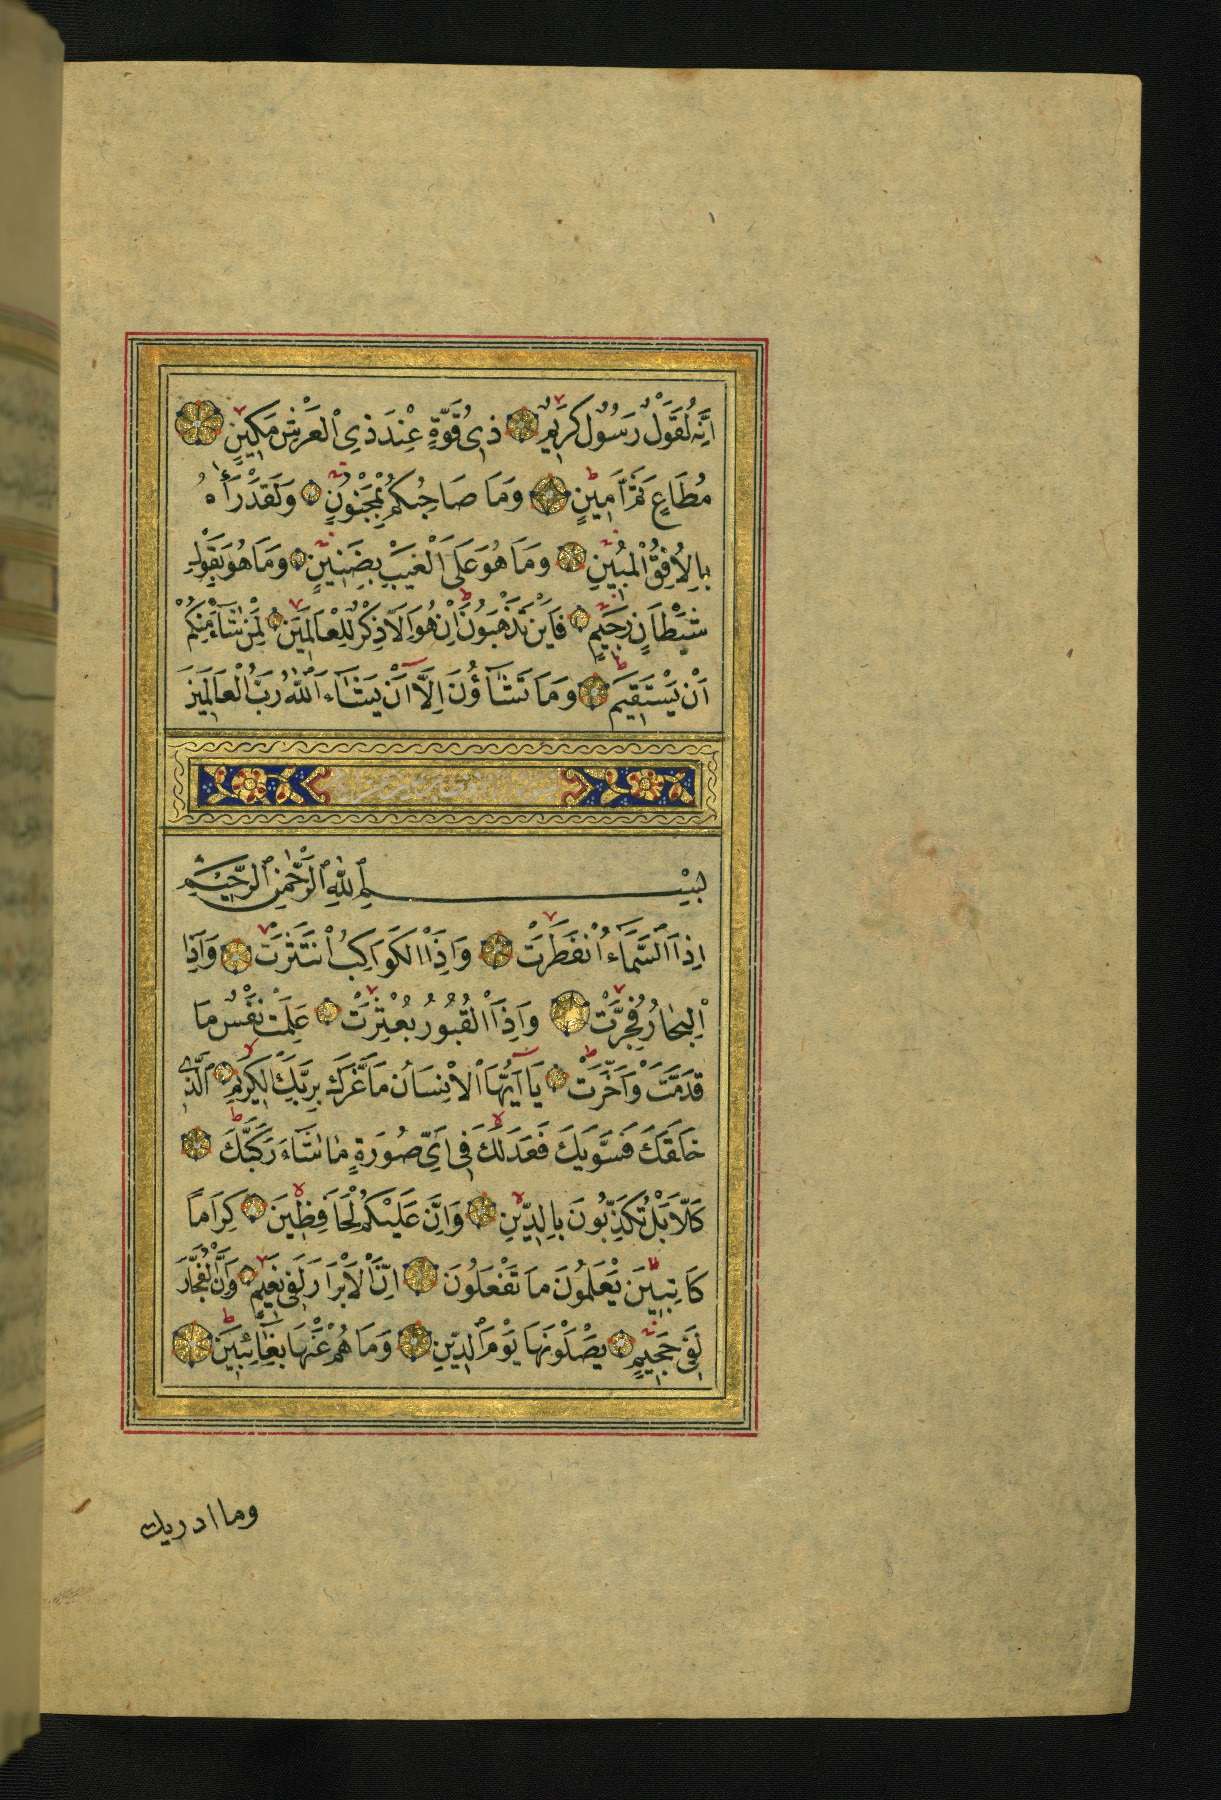 اِنَّهُ لَقَوْلُ رَسُولٍ كَرِيمٍ ذِي قُوَّةٍ عِنْدَ ذِي الْعَرْشِ مَكِينٍ
مُطَاعٍ ثَمَّ اَمِينٍ وَمَا صَاحِبُكُمْ بِمَجْنُونٍ وَلَقَدْ رَاٰهُ
بِالْاُفُقِ الْمُبِينِ وَمَا هُوَ عَلَى الْغَيْبِ بِضَنِينٍ وَمَا هُوَ بِقَوْلِ
شَيْطَانٍ رَجِيمٍ فَاَيْنَ تَذْهَبُونَ اِنْ هُوَ اِلَّا ذِكْرٌ لِلْعَالَمِينَ لِمَنْ شَاءَ مِنْكُمْ
اَنْ يَسْتَقِيمَ وَمَا تَشَاؤُنَ اِلَّا اَنْ يَشَاءَ اللّٰهُ رَبُّ الْعَالَمِينَ
بِسْمِ اللّٰهِ الرَّحْمٰنِ الرَّحِيمِ
اِذَا السَّمَاءُ انْفَطَرَتْ وَاِذَا الْكَوَاكِبُ انْتَثَرَتْ وَاِذَا
الْبِحَارُ فُجِّرَتْ وَاِذَا الْقُبُورُ بُعْثِرَتْ عَلِمَتْ نَفْسٌ مَا
قَدَّمَتْ وَاَخَّرَتْ يَا اَيُّهَا الْاِنْسَانُ مَا غَرَّكَ بِرَبِّكَ الْكَرِيمِ الَّذِي
خَلَقَكَ فَسَوّٰيكَ فَعَدَلَكَ فِي اَيِّ صُورَةٍ مَا شَاءَ رَكَّبَكَ
كَلَّا بَلْ تُكَذِّبُونَ بِالدِّينِ وَاِنَّ عَلَيْكُمْ لَحَافِظِينَ كِرَامًا
كَاتِبِينَ يَعْلَمُونَ مَا تَفْعَلُونَ اِنَّ الْاَبْرَارَ لَفِي نَعِيمٍ وَاِنَّ الْفُجَّارَ
لَفِي جَحِيمٍ يَصْلَوْنَهَا يَوْمَ الدِّينِ وَمَا هُمْ عَنْهَا بِغَائِبِينَ
وما ادريك